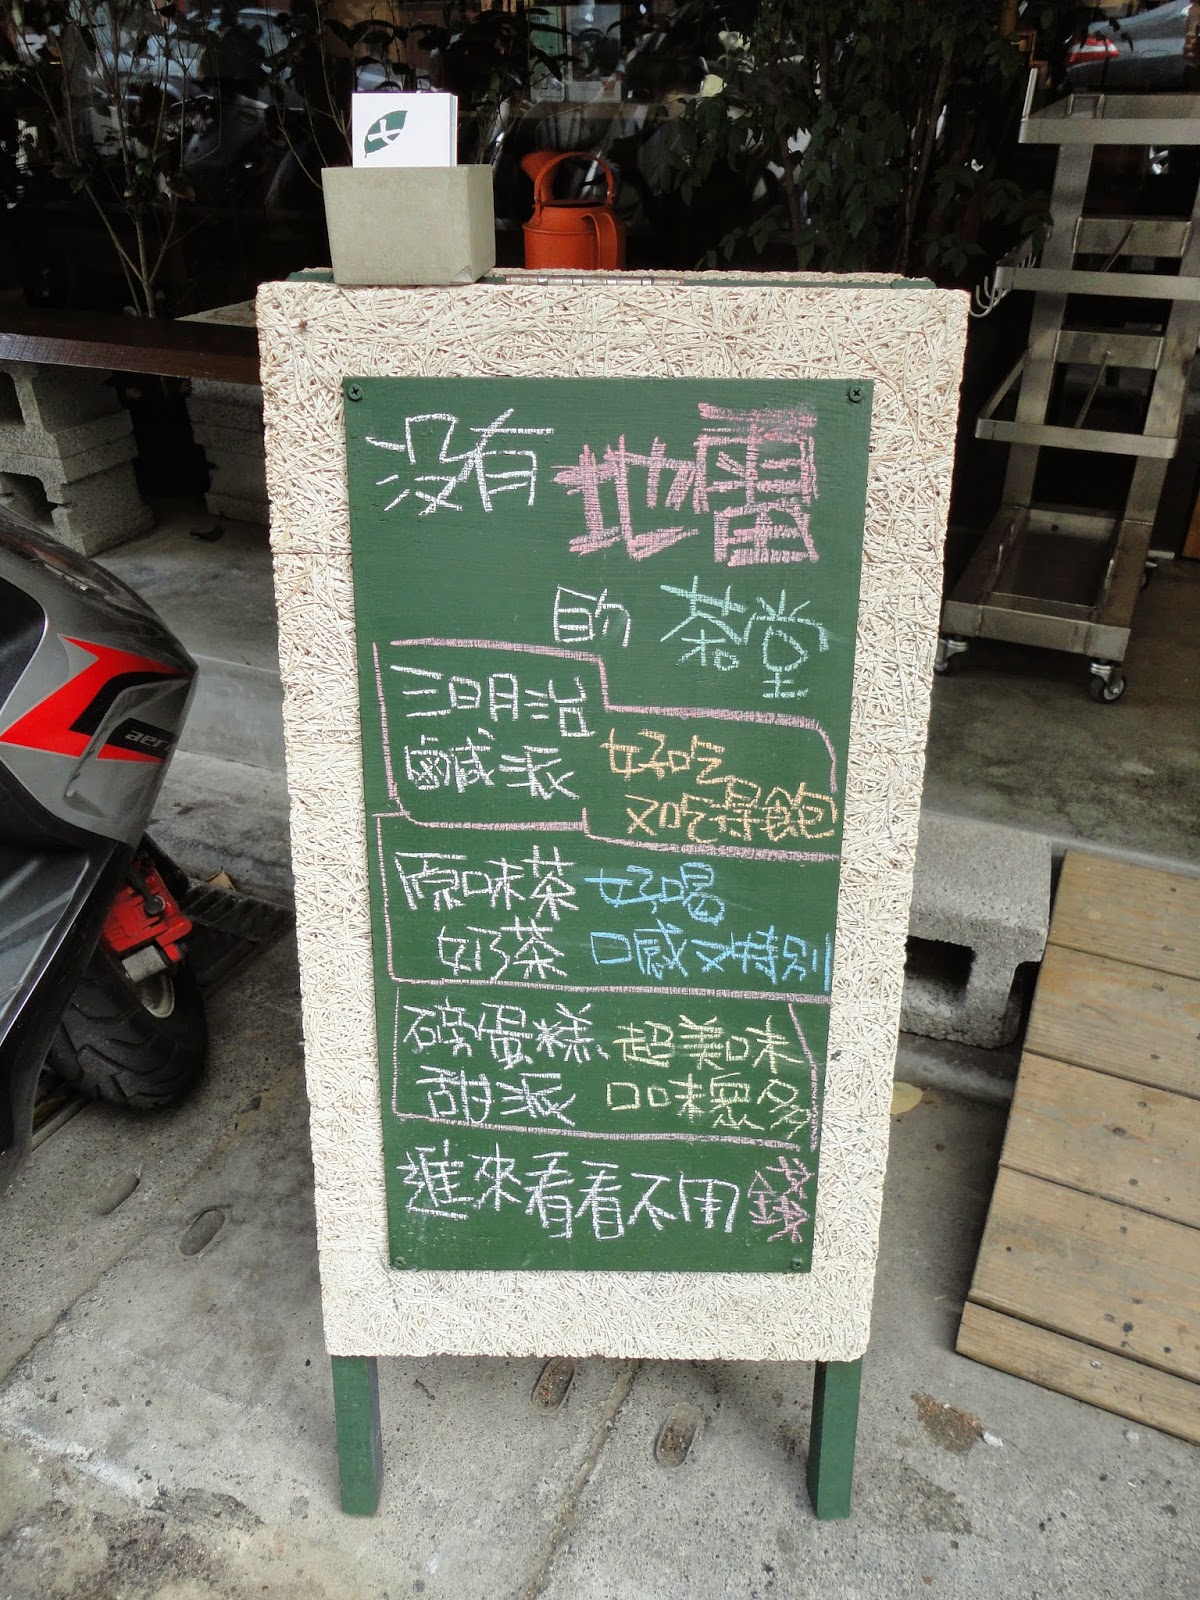 沒有 地雷
的 茶堂
三明治
鹹派
好吃
又吃得飽
原味茶
奶茶
好喝
口感又特別
磅蛋糕、
甜派
超美味
口味眾多
進來看看不用錢
aer